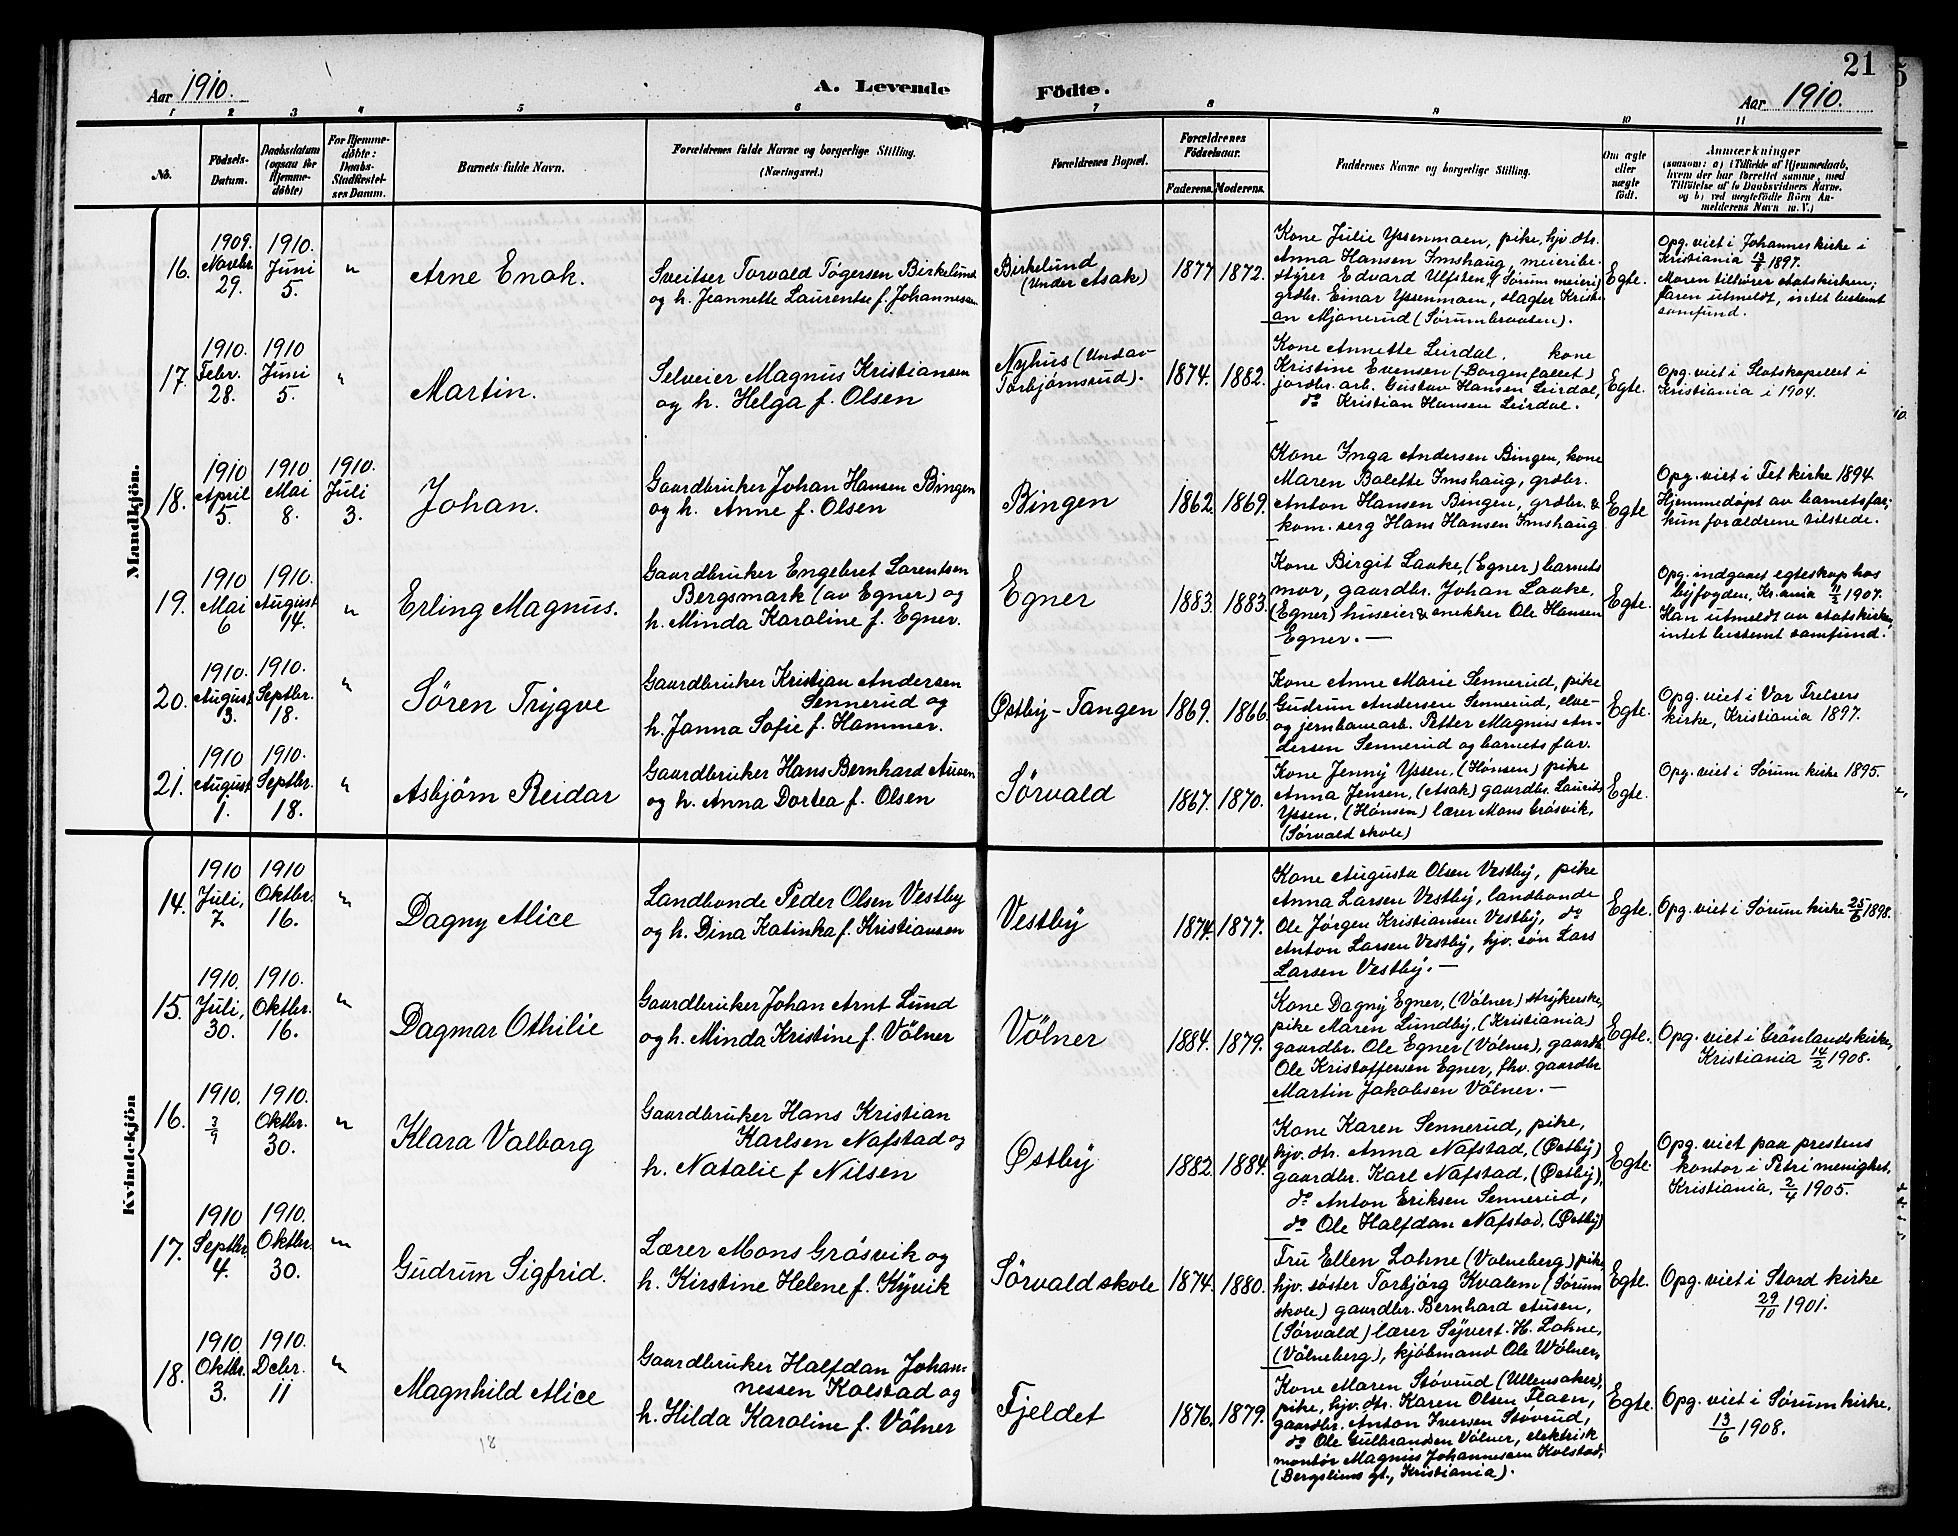 21
Aar 1910.
A. Levende
Födte.
Aar 1910.
1 2 3 4 5 6 7 8 9 10 11
No.
Födsels-
Datum.
Daabsdatum
(ogsaa for
Hjemme-
döbte)
For Hjemme-
döbte:
Daabs-
Stadfæstel-
ses Datum.
Barnets fulde Navn.
Forældrenes fulde Navne og borgerlige Stilling.
(Næringsvei.)
Forældrenes Bopæl.
Forældrenes
Födselsaar.
Faderens.
Moderens.
Faddernes Navne og borgerlige Stilling.
Om ægte
eller
uægte
födt.
Anmærkninger
(saasom: a) i Tilfælde af Hjemmedaab,
hvem der har forrettet samme, med
Tilföielse af to Daabsvidners Navne,
og b) ved uægtefödte Börn An-
melderens Navn m. V.)
Mandkjön.
16.
1909.
Novbr.
29.
1910.
Juni
5.
"
Arne Enok.
Sveitser Torvald Tögersen Birkelund
og h. Jeannette Laurentse f. Johannesen
Birkelund
(Under Asak)
1877
1872.
Kone Julie Yssenmoen, pike, hjv. dtr.
Anna Hansen Imshaug, meieribe-
styrer Edvard Ulfsten, (Sörum meieri)
grdbr. Einar Yssenmoen, slagter Kristi-
an Mjønerud (Sørumbraaten).
Egte.
Opg. viet i Johannes kirke i
Kristiania 13/8 1897.
Moren tilhører statskirken;
faren utmeldt, intet bestemt
samfund.
17.
1910.
Febr.
28.
1910
Juni
5.
"
Martin.
Selveier Magnus Kristiansen
og h. Helga f. Olsen
Nyhus (Und av
Torbjørnsrud).
1874.
1882.
Kone Annette Leirdal. kone
Kristine Evensen (Borgenfallet)
jordbr. arb. Gustav Hansen Leirdal,
do Kristian Hansen Leirdal.
Egte.
Opg. viet i Slotskapellet i
Kristiania i 1904.
18.
1910
April
5.
1910
Mai
8.
1910.
Juli
3.
Johan.
Gaardbruker Johan Hansen Bingen
og h. Anne f. Olsen
Bingen
1862.
1869.
Kone Inga Andersen Bingen, kone
Maren Bolette Imshaug, grdbr.
Anton Hansen Bingen, grdbr. &
kom. serg Hans Hansen Imshaug
Egte
Opg. viet i Fet kirke 1894.
Hjemmedøpt av barnets far,
kun forældrene tilstede.
19.
1910
Mai
6
1910.
August
14.
"
Erling Magnus.
Gaardbruker Engebret Lorentsen
Bergsmark (av Egner) og
h. Minda Karoline f. Egner.
Egner
1883.
1883.
Kone Birgit Laake, (Egner) barnets
mor, gaardbr. Johan Laake,
(Egner) huseier & snekker Ole Hansen
Egner. —
Egte.
Opg. indgaaet egteskap hos
byfogden, Kr.ania 11/2 1907.
Han utmeldt av statskirken,
intet bestemt samfund.
20.
1910.
August
3.
1910.
Septbr.
18.
"
Sören Trygve
Gaardbruker Kristian Andersen
Sennerud og
h. Janna Sofie f. Hammer.
Østby-Tangen
1869.
1866.
Kone Anne Marie Sennerud, pike
Gudrun Andersen Sennerud, elve-
og jernbanearb. Petter Magnus An-
dersen Sennerud og barnets far.
Egte.
Opg. viet i Vor Frelsers
kirke, Kristiania 1897.
21.
1910
August
1.
1910.
Septbr.
18.
"
Asbjörn Reidar
Gaardbruker Hans Bernhard Ausen
og h. Anna Dortea f. Olsen
Sörvald
1867.
1870.
Kone Jenny Yssen, (Hönsen) pike
Anna Jensen, (Asak) gaardbr. Laurits
Yssen, (Hönsen) lærer Mons Gråsvik,
(Sørvald skole)
Egte.
Opg. viet i Sørum kirke 1895.
Kvindekjön
14.
1910
Juli,
7.
1910
Oktbr.
16.
"
Dagny Alice
Landbonde Peder Olsen Vestby
og h. Dina Katinka f. Kristiansen
Vestby
1874.
1877.
Kone Augusta Olsen Vestby, pike
Anna Larsen Vestby, landbonde
Ole Jörgen Kristiansen Vestby, do
Anton Larsen Vestby, hjv. søn Lars
Larsen Vestby. —
Egte.
Opg. viet i Sørum kirke 25/6 1898.
15.
1910.
Juli,
30.
1910.
Oktbr.
16.
"
Dagmar Othilie
Gaardbruker Johan Arnt Lund
og h. Minda Kristine f. Völner
Völner
1884.
1879.
Kone Dagny Egner, (Völner) strykerske,
pike Maren Lundby, (Kristiania)
gaardbr. Ole Egner (Völner), gaardbr
Ole Kristoffersen Egner, fhv. gaardbr
Martin Jakobsen Völner. —
Egte.
Opg. viet i Grönlands kirke,
Kristiania 14/2 1908.
16.
1910.
3/9
1910.
Oktbr.
30.
"
Klara Valborg
Gaardbruker Hans Kristian
Karlsen Nafstad og
h. Natalie f Nilsen
Østby
1882.
1884.
Kone Karen Sennerud, pike,
hjv. dtr. Anna Nafstad, (Østby)
gaardbr. Karl Nafstad, (Østby),
do Anton Eriksen Sennerud,
do Ole Halfdan Nafstad, (Østby)
Egte.
Opg. viet paa prestens
kontor i Petri menighet,
Kristiania, 2/4 1905.
17.
1910
Septbr.
4.
1910.
Oktbr.
30.
"
Gudrun Sigfrid.
Lærer Mons Gråsvik og
h. Kirstine Helene f. Kyvik
Sörvald skole
1874.
1880.
Fru Ellen Lohne (Volneberg) pike,
hjv. søster Torbjörg Kvalem (Sørum
skole) gaardbr. Bernhard Ausen,
(Sørvald) lærer Syvert. H. Lohne,
(Völneberg), kjöbmand Ole Wölner,
Egte.
Opg. viet i Stord kirke
29/10 1901.
18.
1910.
Oktbr.
3.
1910.
Decbr.
11
"
Magnhild Alice
Gaardbruker Halfdan Johan-
nessen Kolstad og
h. Hilda Karoline f. Völner
Fjeldet
1876.
1879.
Kone Maren Støvrud (Ullensaker),
pike, hjv. dtr. Karen Olsen Flaen,
gaardbr. Anton Iversen Støvrud,
do Ole Gulbrandsen Völner, elektrisk
montör Magnus Johannessen Kolstad,
(Bergsliens gt., Kristiania).
Egte.
Opg. viet i Sørum kirke.
13/6 1908.
18